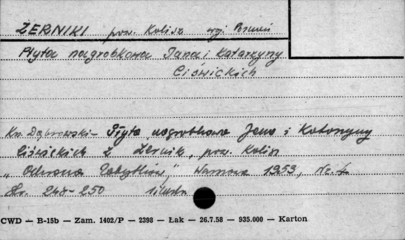 ŻERNIKI pow. Kalisz woj. Poznań
Płyta nagrobkowa Jana i Katarzyny
Ciświckich
Kw. Dąbrowski – Płyta nagrobkowa Jana i Katarzyny
Ciświckich z Żernik, pow. Kalisz
"Ochrona Zabytków", Warszawa 1953, Nr.
Str. 248-250 1 ilustr.
CWD — B-15b — Zam. 1402/P — 2398 — Łak — 26.7.58 — 935.000 — Karton